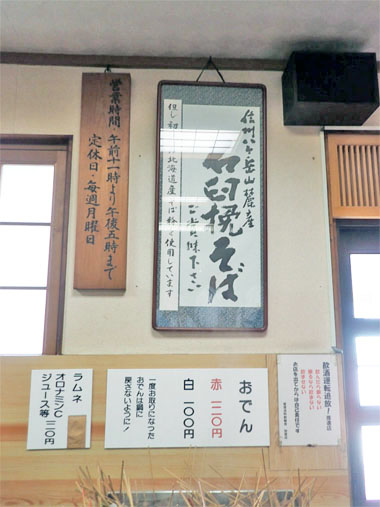 営業時間 午前十一時より午後五時まで
定休日・毎週月曜日
信州八ヶ岳山麓産
石臼挽そば
ご賞味下さい
北海道産そば粉を使用しています
おでん
赤 一二〇円
白 一〇〇円
一度お取りになった
おでんは鍋に
戻さないように!
ラムネ
オロナミンC
ジュース等 一二〇円
飲酒運転追放!推進店